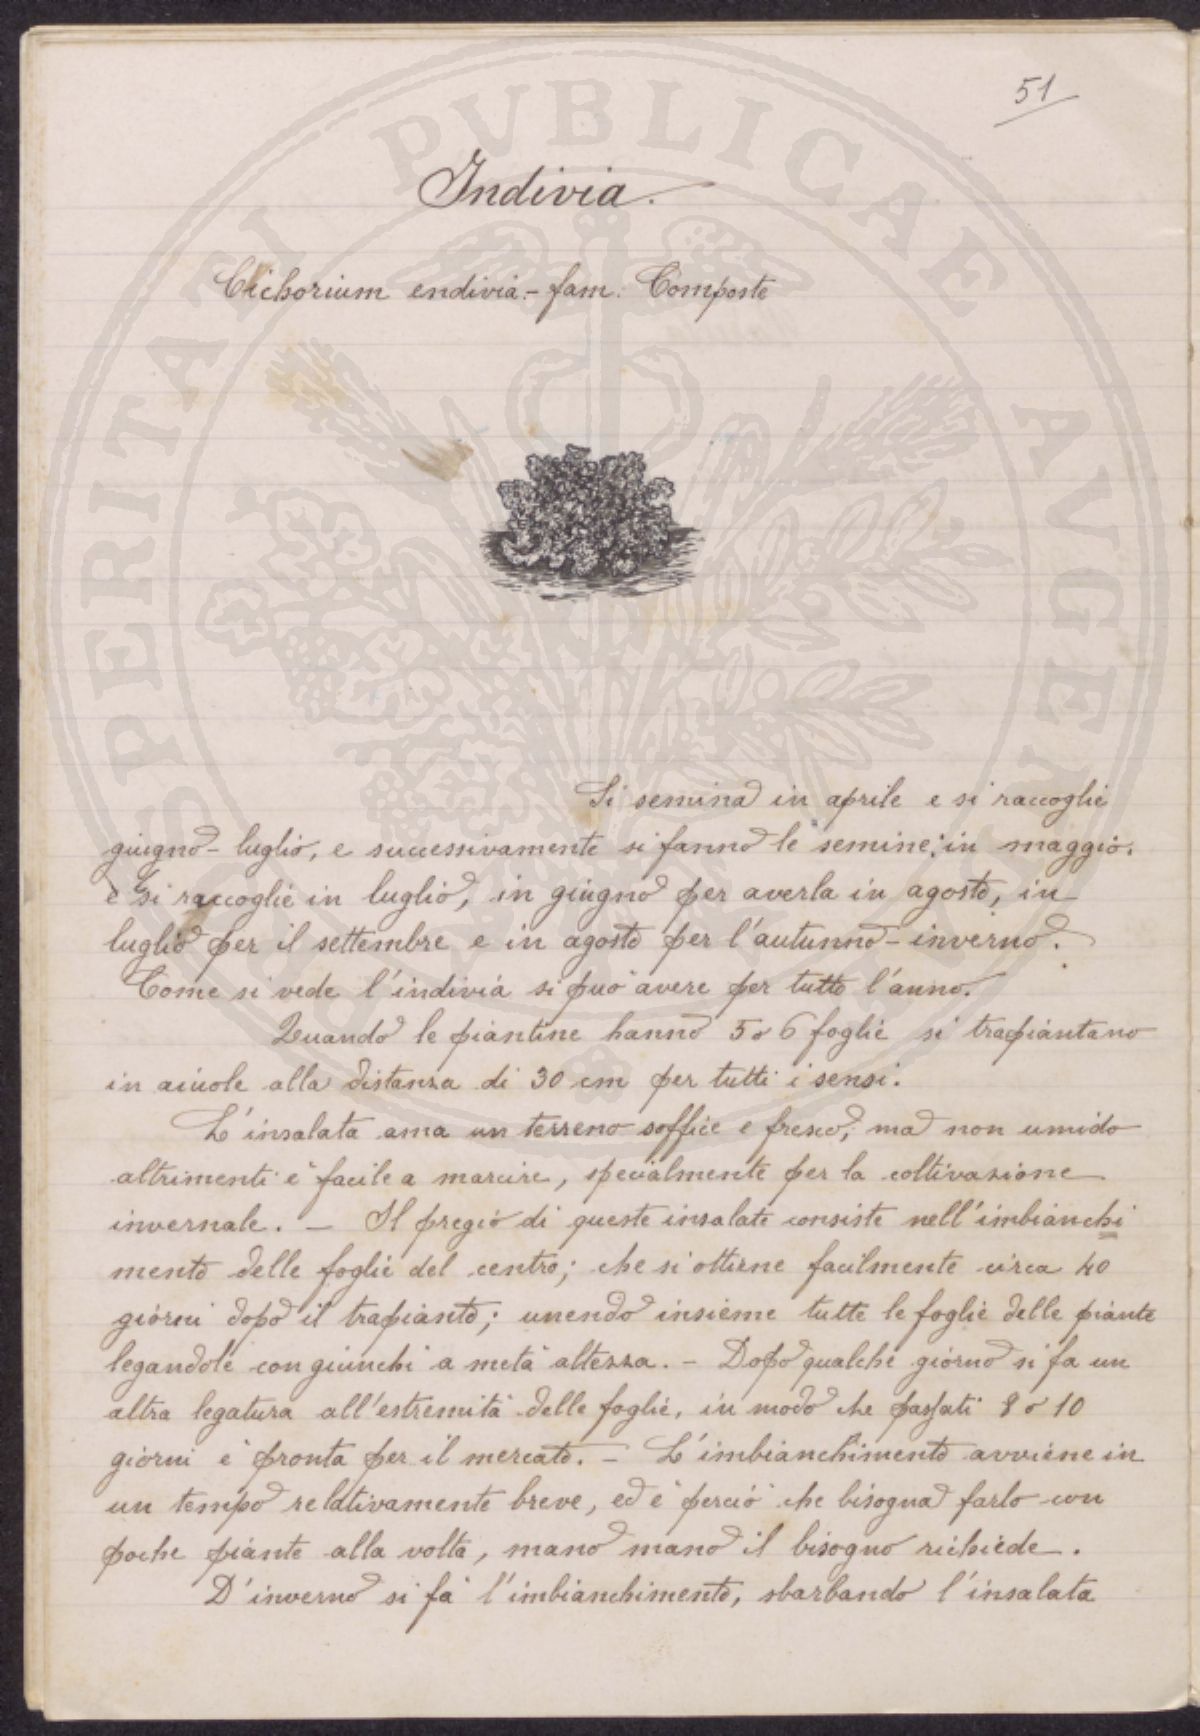 51
Indivia.
Cichorium endivia.- fam. Composte
Si semina in aprile e si raccoglie
giugno - luglio, e successivamente si fanno le semine: in maggio.
e si raccoglie in luglio, in giugno per averla in agosto, in
luglio per il settembre e in agosto per l'autunno - inverno.
Come si vede l'indivia si può avere per tutto l'anno.
Quando le piantine hanno 5 o 6 foglie si trapiantano
in aiuole alla distanza di 30 cm per tutti i sensi.
L'insalata ama un terreno soffice e fresco, ma non umido
altrimenti è facile a marcire, specialmente per la coltivazione
invernale. - Il pregio di queste insalate consiste nell'imbianchi
mento delle foglie del centro; che si ottiene facilmente circa 40
giorni dopo il trapianto; unendo insieme tutte le foglie delle piante
legandole con giunchi a metà altezza. - Dopo qualche giorno si fa un
altra legatura all'estremità delle foglie, in modo che passati 8 o 10
giorni è pronta per il mercato. - L'imbianchimento avviene in
un tempo relativamente breve, ed è perciò che bisogna farlo con
poche piante alla volta, mano mano il bisogno richiede.
D'inverno si fa l'imbianchimento, sbarbando l'insalata
PUBLICAE
AVGEN
SPERITATI